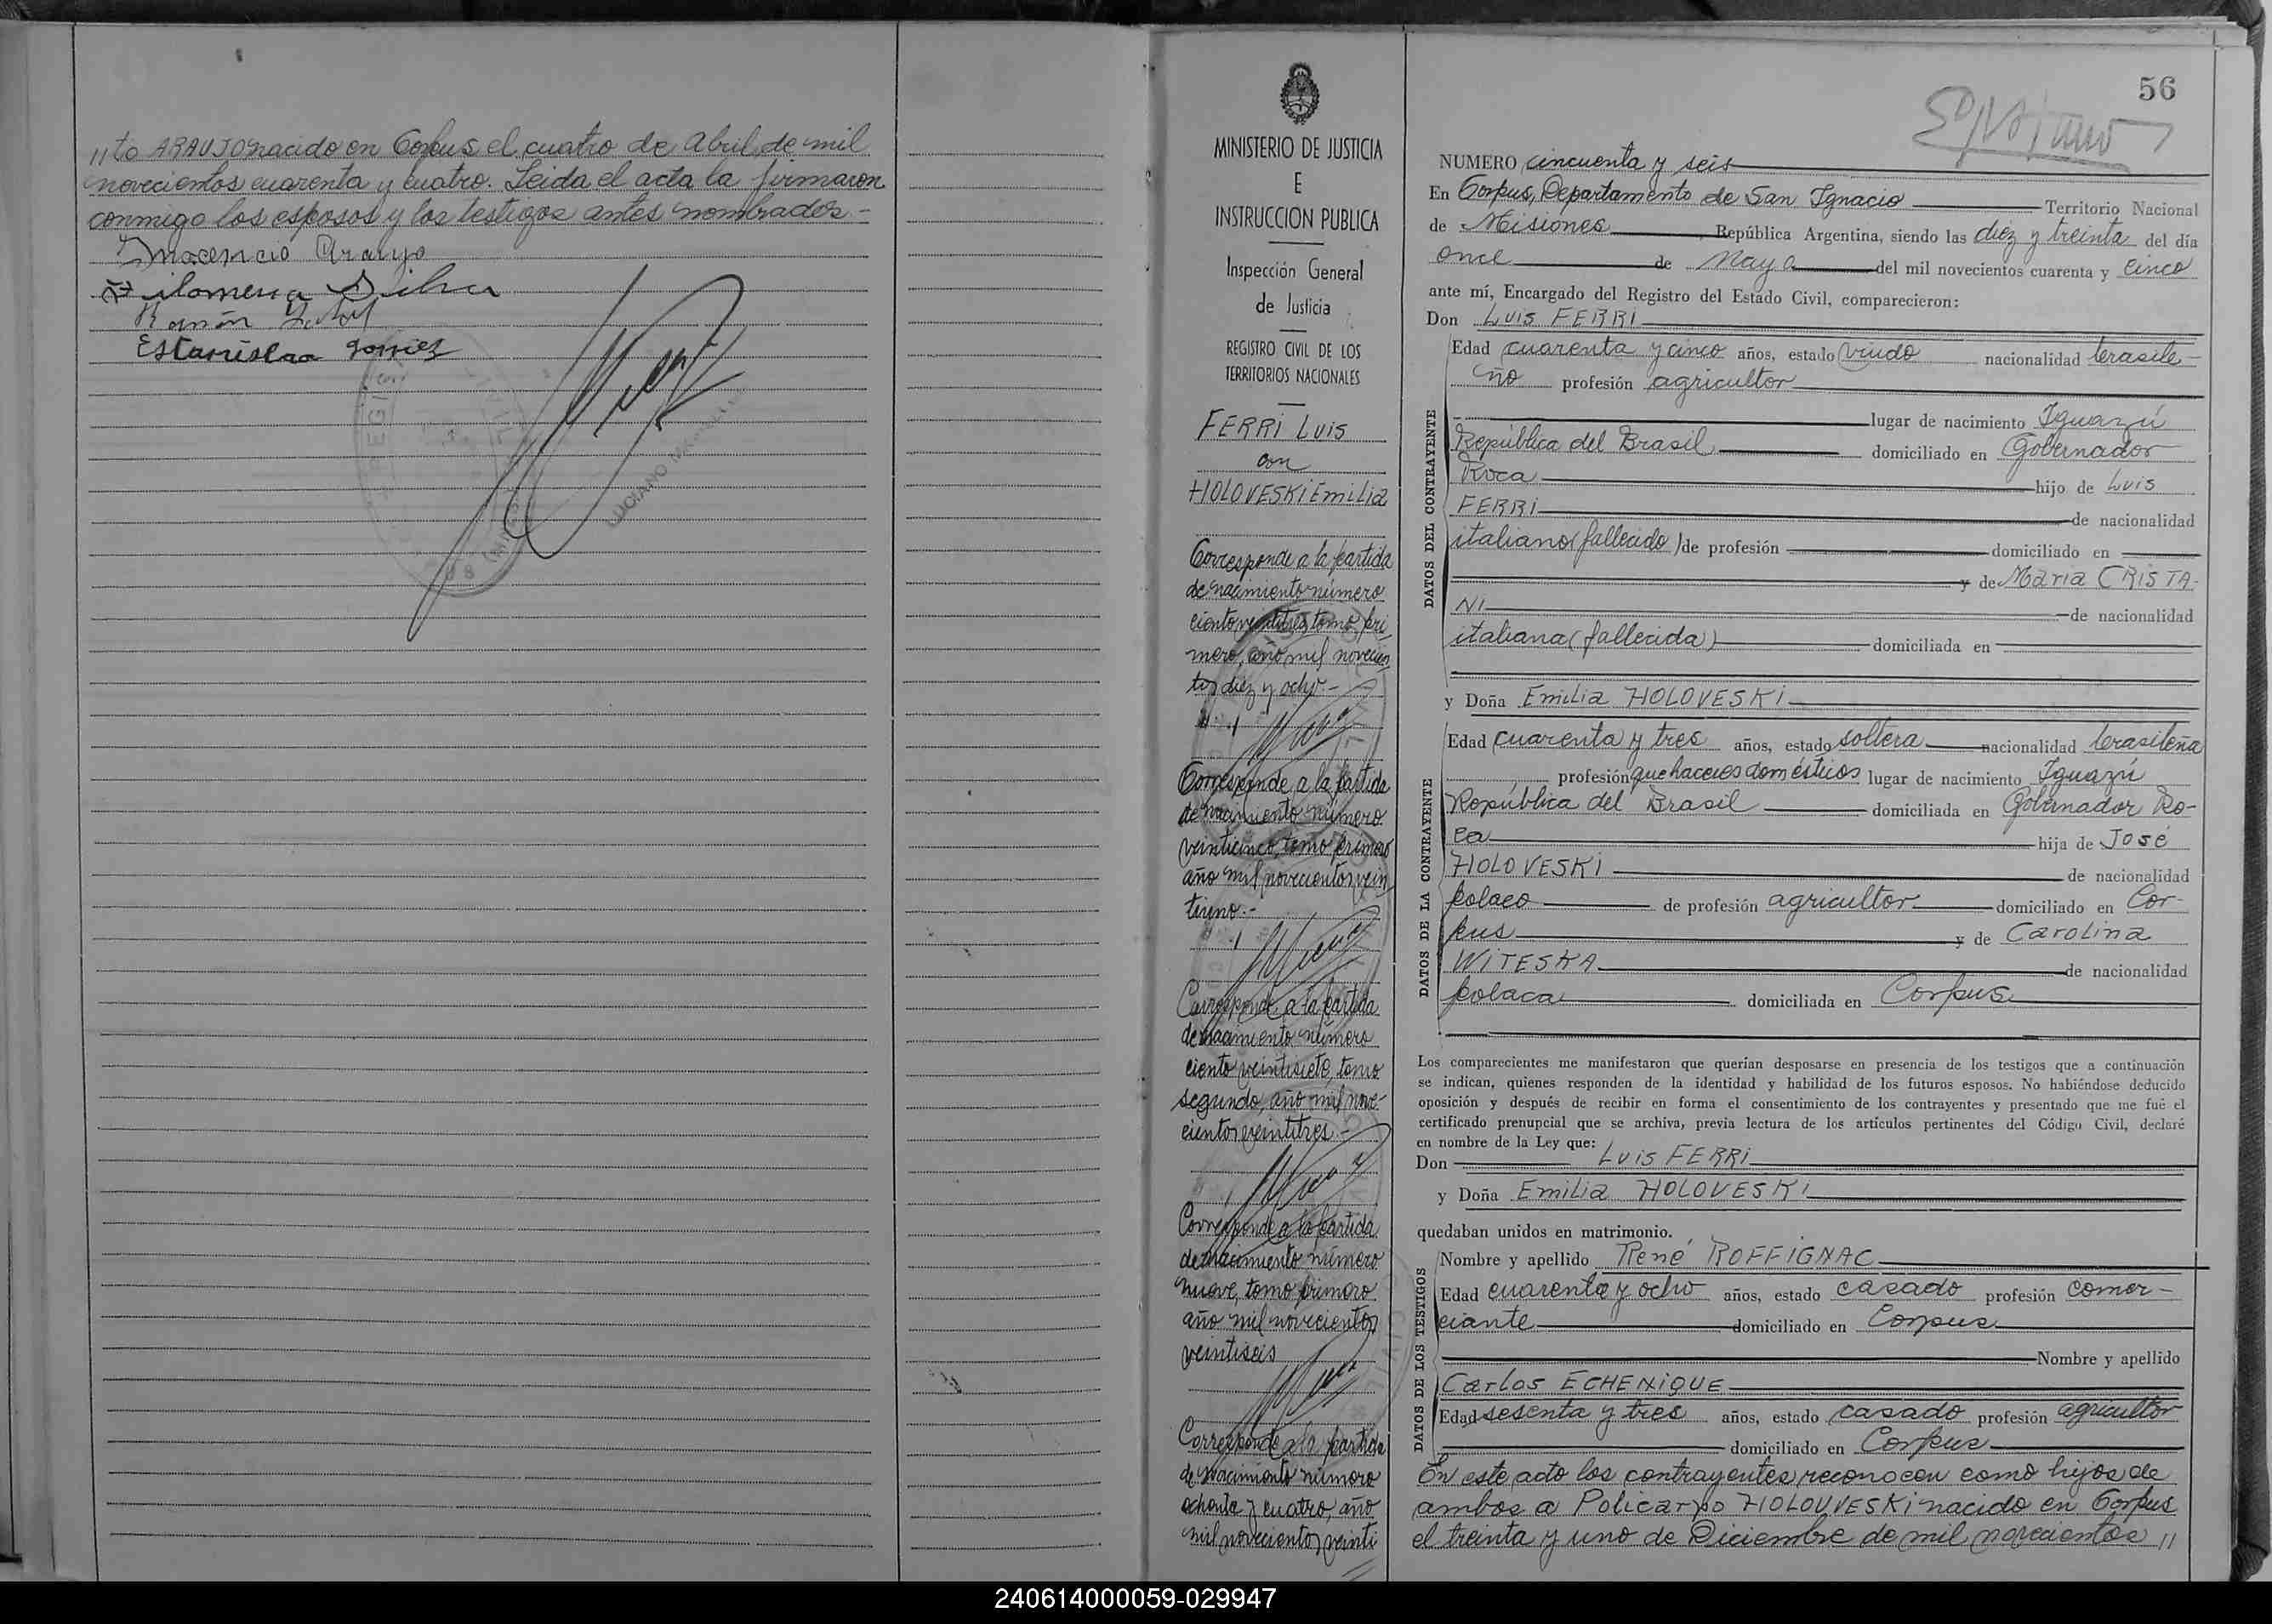 11to ARAUJO nacido en Corpus el cuatro de Abril de mil
novecientos cuarenta y cuatro. Leida el acta la firmaron
conmigo los esposos y los testigos antes nombrados -
Inocencio Araujo
Filomena Silva
Ramón
Estanislao Gomez
LUCIANO
MINISTERIO DE JUSTICIA
E
INSTRUCCION PUBLICA
Inspección General
de Justicia
REGISTRO CIVIL DE LOS
TERRITORIOS NACIONALES
FERRI Luis
con
HOLOVESKI Emilia
Corresponde a la partida
de nacimiento número
ciento veintitres, tomo pri
mero, año mil novecien
tos diez y ocho -
Corresponde a la partida
de nacimiento número
veinticinco, tomo primero
año mil novecientos vein
tiuno.-
Corresponde a la partida
de nacimiento número
ciento veintisiete, tomo
segundo, año mil nove-
cientos veintitres -
Corresponde a la partida
de nacimiento número
nueve, tomo primero
año mil novecientos
veintiseis
Corresponde a la partida
de nacimiento número
ochenta y cuatro, año
mil novecientos veinti
56
NUMERO cincuenta y seis
En Corpus, Departamento de San Ignacio Territorio Nacional
de Misiones, República Argentina, siendo las diez y treinta del día
once de Mayo del mil novecientos cuarenta y cinco
ante mí, Encargado del Registro del Estado Civil, comparecieron:
Don Luis FERRI
DATOS DEL CONTRAYENTE
Edad cuarenta y cinco años, estado viudo nacionalidad brasile-
ño profesión agricultor
lugar de nacimiento Iguazú
República del Brasil domiciliado en Gobernador
Roca hijo de Luis
FERRI de nacionalidad
italiano (fallecido) de profesión domiciliado en
y de Maria CRISTA-
NI de nacionalidad
italiana (fallecida) domiciliada en
y Doña Emilia HOLOVESKI
DATOS DE LA CONTRAYENTE
Edad cuarenta y tres años, estado soltera nacionalidad brasileña
profesión quehaceres domésticos lugar de nacimiento Iguazú
República del Brasil domiciliada en Gobernador Ro-
ca hija de José
HOLOVESKI de nacionalidad
polaco de profesión agricultor domiciliado en Cor-
pus y de Carolina
WITESKA de nacionalidad
polaca domiciliada en Corpus
Los comparecientes me manifestaron que querían desposarse en presencia de los testigos que a continuación
se indican, quienes responden de la identidad y habilidad de los futuros esposos. No habiéndose deducido
oposición y después de recibir en forma el consentimiento de los contrayentes y presentado que me fué el
certificado prenupcial que se archiva, previa lectura de los artículos pertinentes del Código Civil, declaré
en nombre de la Ley que:
Don Luis FERRI
y Doña Emilia HOLOVESKI
quedaban unidos en matrimonio.
DATOS DE LOS TESTIGOS
Nombre y apellido René ROFFIGNAC
Edad cuarenta y ocho años, estado casado profesión comer-
ciante domiciliado en Corpus
Nombre y apellido
Carlos ECHENIQUE
Edad sesenta y tres años, estado casado profesión agricultor
domiciliado en Corpus
En este acto los contrayentes reconocen como hijos de
ambos a Policarpo HOLOUVESKI nacido en Corpus
el treinta y uno de Diciembre de mil novecientos 11
240614000059-029947